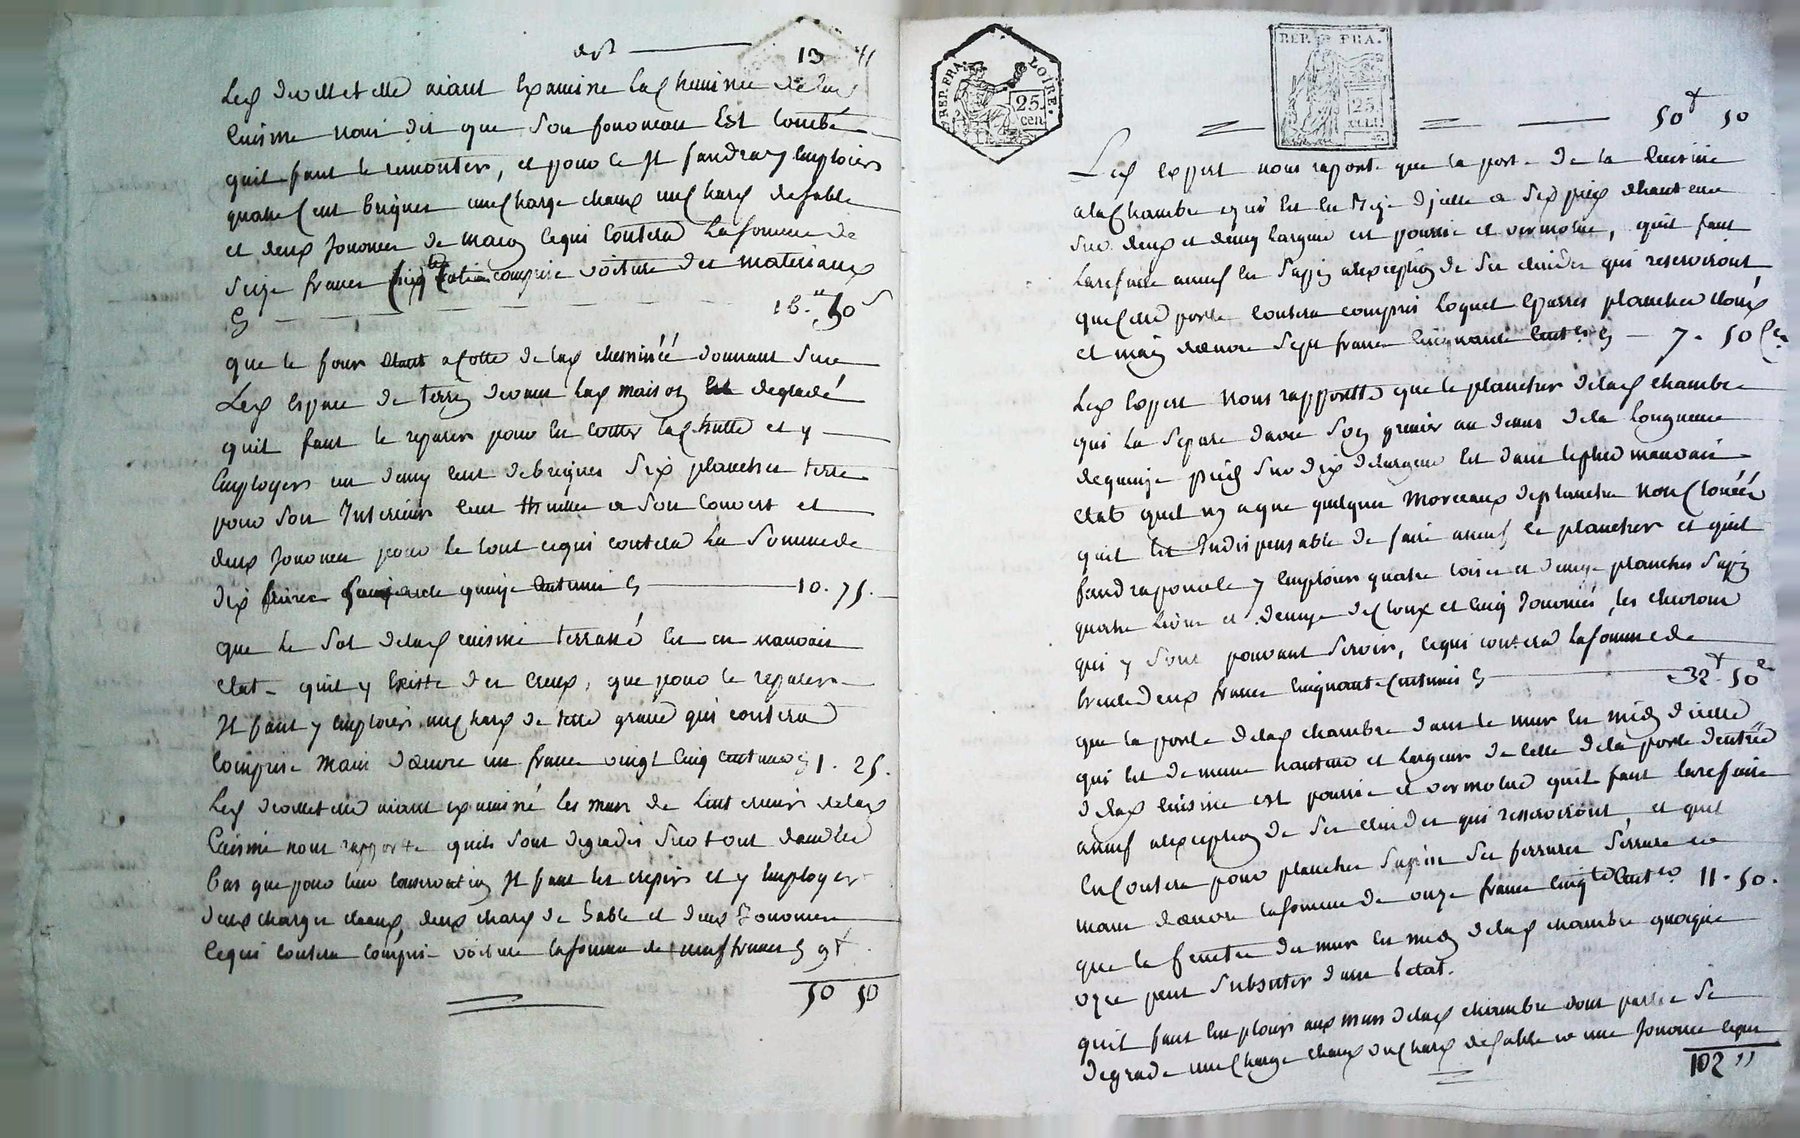 13 "
Led. Deville aiant Examiné lad. cheminée de lad.
Cuisine nous dit que Son fourneau Est tombé
quil faut le remonter, et pour ce Il faudray Employer
quatre Cent briques une Charge chaux une Chard. de sable
et deux Journées de macon cequi Coutera la Somme de
Seize francs comprise voiture des materiaux
50
que le four etant a Cotté de lad. cheminéé donnant Sur
Led. Espace de terrein devant lad. maison Est degradé
quil faut le reparer pour En Cotter lad. chutte et y
Employer un demy Cent de briques Six planches terre
pour Son Interieur Cent thuilles a Son Couvert et
deux Journées pour le tout cequi coutera la Somme de
dix francs Soixante quinze Centimes 10 . 75 .
que le Sol delad. cuisine terrassé Est en mauvais
Etat quil y Existe des Creux, que pour le reparer
Il faut y Emploier une Chard. de terre grasse qui coutera
Comprise Main doeuvre un franc vingt Cinq centimes 1 . 25 .
Led. aiant examiné les murs de Linterieur delad.
Cuisine nous rapporte quils Sont degradés Surtout dans le
bas que pour leur Conservation Il faut les crepir et y Employer
deux charges chaux, deux chard. de Sable et deux Journées
Cequi Coutera Compris voiture la somme de neuf francs 9 "
50 50
REP. FRA. LOIRE.
25 cen
REP. FRA.
25
50 " 50
Led. expert nous raporte que la porte de la Cuisine
alad. Chambre equi Est En Midy dicelle a Six pieds dhauteur
Sur deux et demy Largeur est pourrie et vermolue, quil faut
Larefaire aneuf En Sappin alexception de Ses elindes qui reserviront
que lad. porte Coutera compris loquet Eparres planches cloux
et main doeuvre Sept francs Cinquante Cent.es 7 . 50 C.
Led. Expert Nous rapportte que le plancher delad. chambre
qui La Separe davec Son grenier au dessus de la Longueur
de quinze pieds Sur dix de Largeur Est dans le plus mauvais
Etat quil ny a que quelques Morceaux de planche Non Clouéés
quil Est Indispensable de faire aneuf le plancher et quil
faudra pour cela y Emploier quatre toises et demye planches Sapin
quatre Livres et demye de Cloux et Cinq Journées, les chevrons
qui y Sont pouvant Servir, Cequi coutera la Somme de
trente deux francs Cinquante Centimes 32 " 50 C
que la porte delad. chambre dans le mur En midy dicelle
qui Est de meme hauteur et Largeur de Celle de la porte dentréé
delad. Cuisine est pourrie et vermolue quil faut larefaire
aneuf alexception de Ses elindes qui reserviront, et quil
En Coutera pour planches Sapin Ses ferrures Serrure et
main doeuvre la Somme de onze francs Cinq.te Cent.es 11 . 50 .
que la fenetre du mur En midy delad. chambre quoique
uzée peut Subsister dans l'etat.
quil faut Emploier aux murs delad. chambre dont partie Se
degrade une Charge chaux une Chard. de Sable et une Journée cequi
102 "